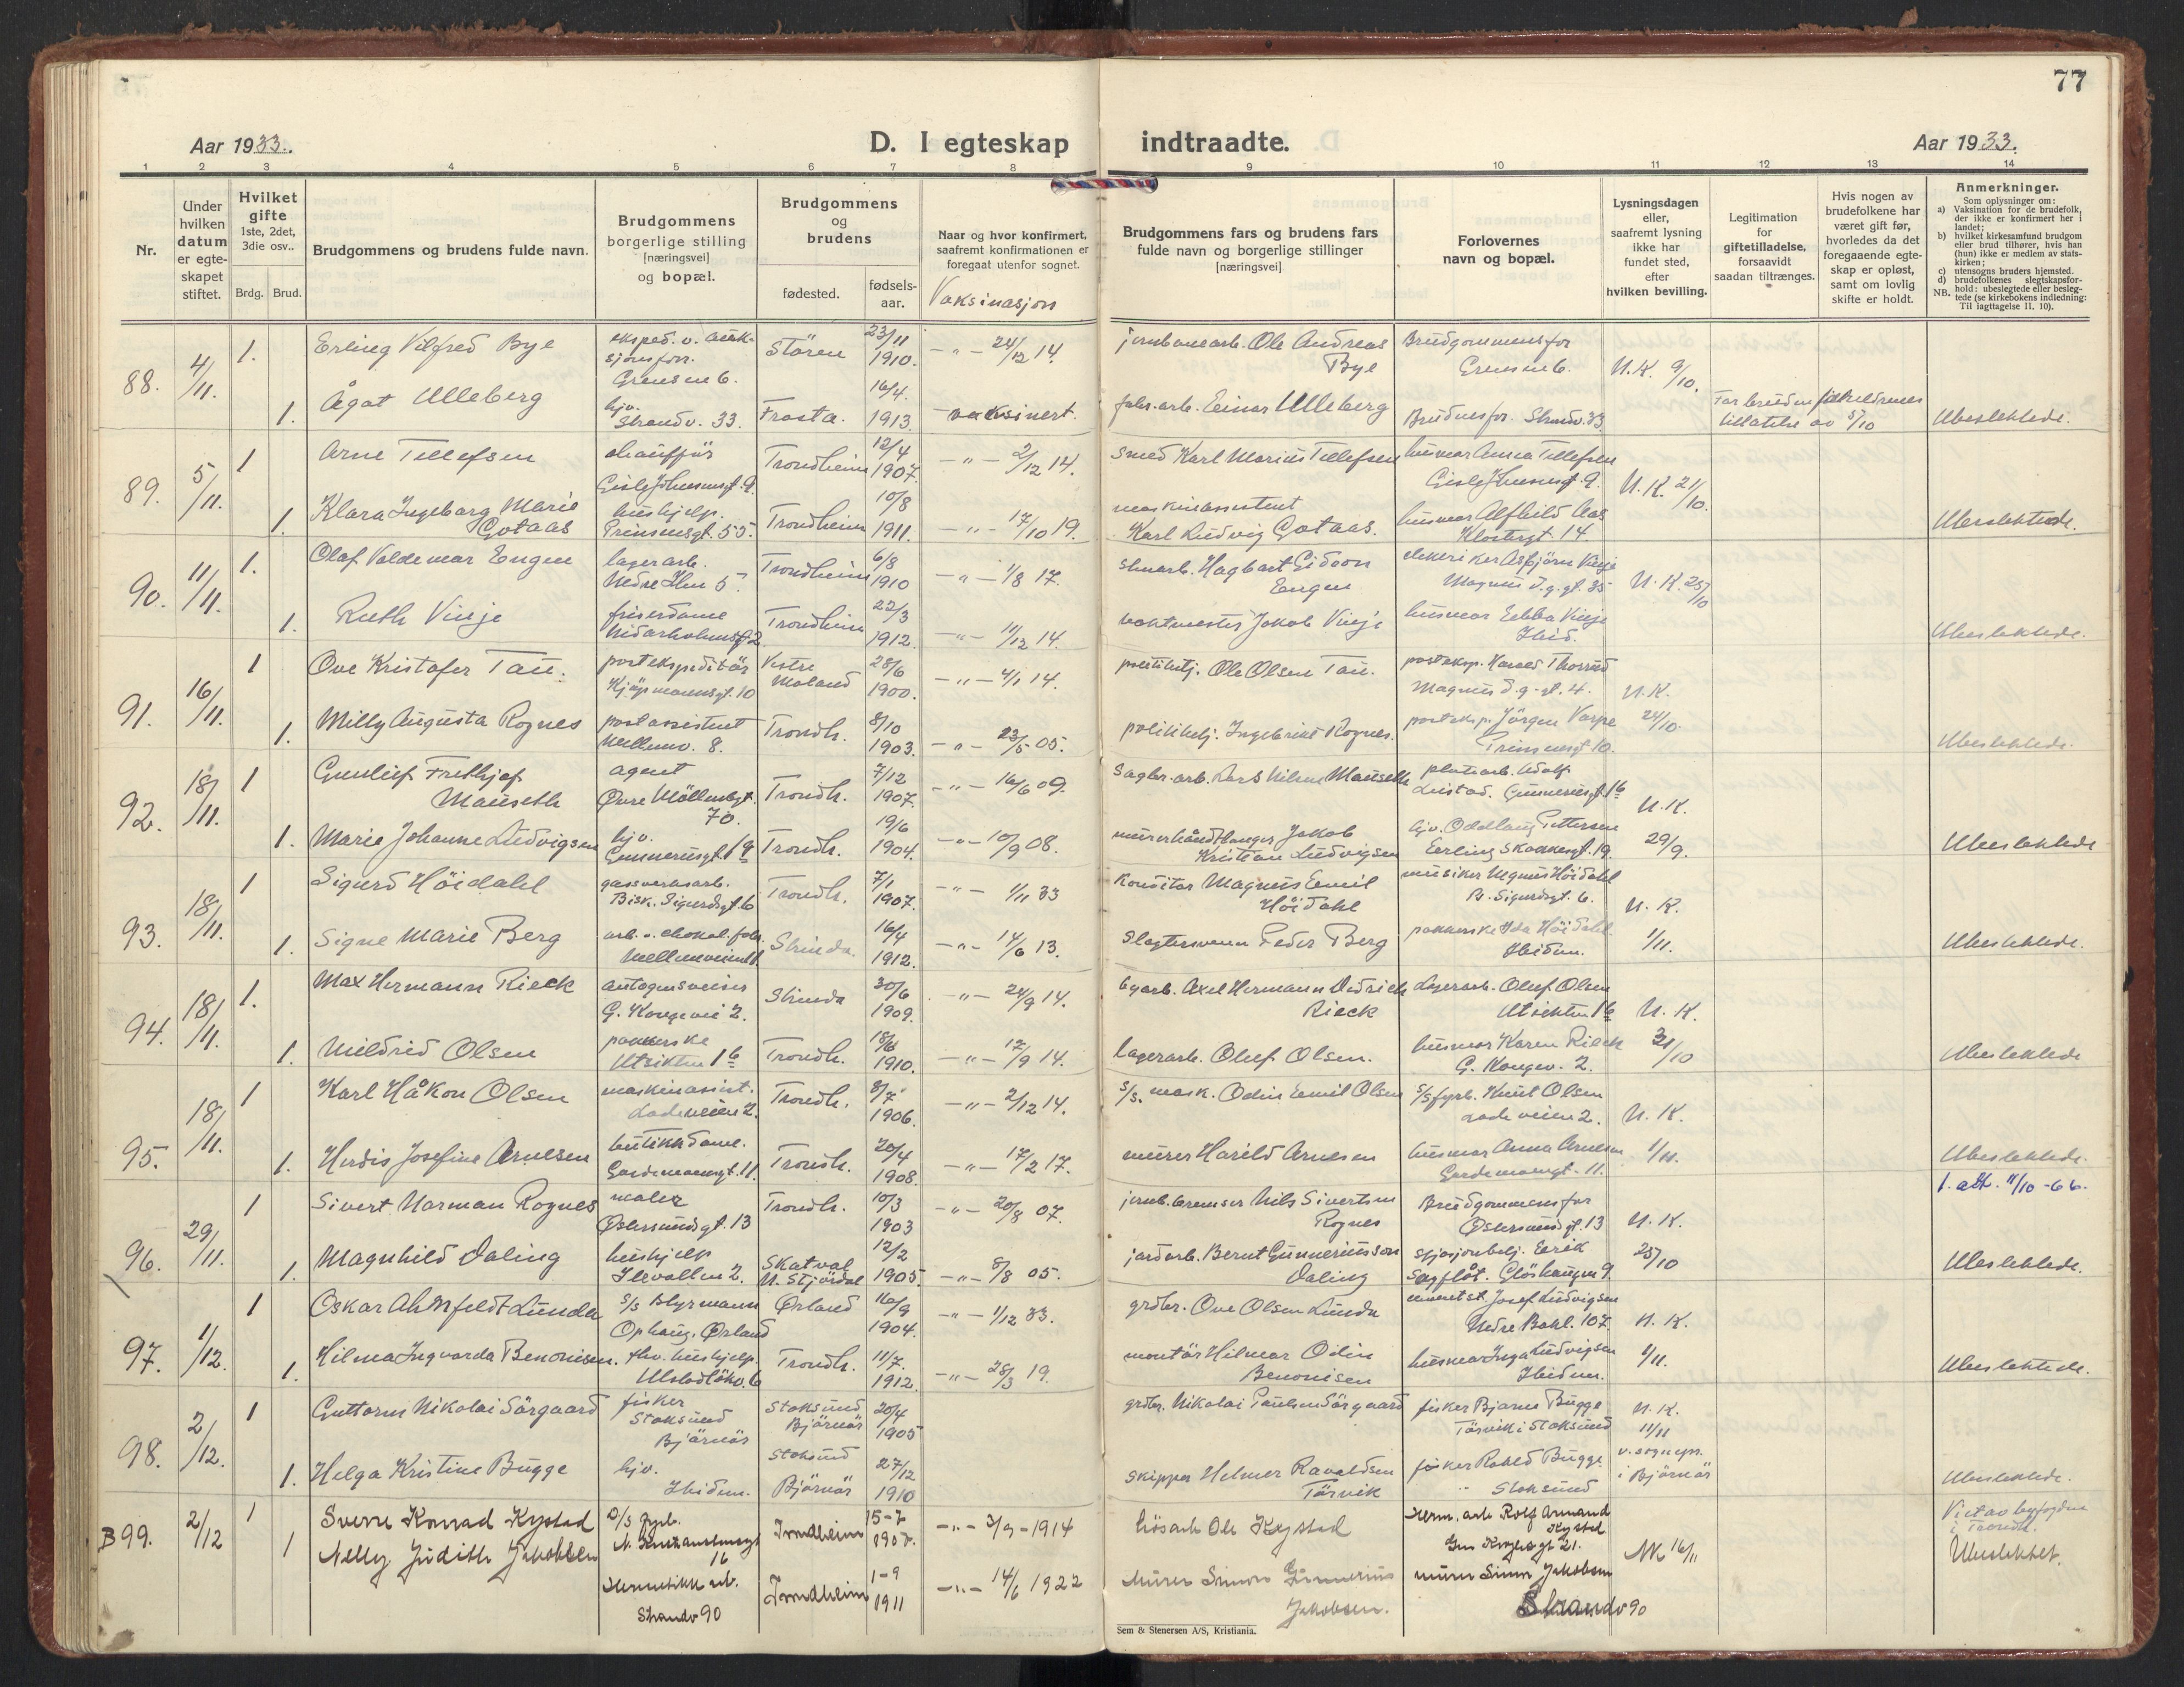 77
Aar 1933.
D. I egteskap indtraadte.
Aar 1933.
1 2 3 4 5 6 7 8 9 10 11 12 13 14
Nr.
Under hvilken datum er egteskapet stiftet.
Hvilket gifte 1ste, 2det, 3die osv..
Brdg. Brud.
Brudgommens og brudens fulde navn.
Brudgommens borgerlige stilling [næringsvei] og bopæl.
Brudgommens og brudens
fødested.
fødsels-aar.
Naar og hvor konfirmert, saafremt konfirmationen er foregaat utenfor sognet.
Vaksinasjon
Brudgommens fars og brudens fars fulde navn og borgerlige stillinger [næringsvei]
Forlovernes navn og bopæl.
Lysningsdagen eller, saafremt lysning ikke har fundet sted, efter hvilken bevilling.
Legitimation for giftetilladelse, forsaavidt saadan tiltrænges.
Hvis nogen av brudefolkene har været gift før, hvorledes da det foregaaende egteskap er opløst, samt om lovlig skifte er holdt.
Anmerkninger.
Som oplysninger om:
a) Vaksination for de brudefolk, der ikke er konfirmert her i landet;
b) hvilket kirkesamfund brudgom eller brud tilhører, hvis han (hun) ikke er medlem av statskirken;
c) utensogns bruders hjemsted.
d) brudefolkenes slegtskapsforhold: ubeslegtede eller beslegtede (se kirkebokens indledning: Til iagttagelse II. 10).
NB.
88. 4/11. 1. Erling Vilfred Bye
eksped. v. auksjonsforr. Grensen 6.
Stören 23/11 1910. -"- 24/12 14.
jernbanearb. Ole Andreas Bye
Brudgommens far Grensen 6.
N.K. 9/10.
1. Ågot Ulleberg
hjv. Strandv. 33. Frosta. 16/4. 1913. vaksinert.
fabr.arb. Einar Ulleberg
Brudens far Strandv. 33
tillatelse av 5/10
Ubeslektede.
89. 5/11. 1 Arne Tellefsen
chaufför
Trondheim 12/4 1907. -"- 2/12 14.
smed Karl Marius Tellefsen
husmor Anna Tellefsen
N.K. 21/10.
1. Klara Ingeborg Marie Gotaas
hushjelp. Prinsensgt. 55. Trondheim 10/8 1911. -"- 17/10 19.
maskinassistent Karl Ludvig Gotaas.
husmor Alfhild Aas Klostergt. 14
Ubeslektede.
90. 11/11. 1. Olaf Valdemar Engen
lagerarb. Nedre Ilen 5. Trondheim 6/8 1910 -"- 1/8 17.
Hagbart Eidoon Engen
elektriker Asbjörn Vinje Magnus d.g.gt. 35
N.K. 25/10
1. Ruth Vinje
friserdame Nidarholmsgt. 2 Trondheim 22/3 1912. -"- 11/12 14.
vaktmester Jakob Vinje
husmor Ebba Vinje Ibid.
Ubeslektede.
91. 16/11. 1 Ove Kristofer Tau.
postekspeditör Kjöpmannsgt. 10 Vestre Moland 28/6 1900. -"- 4/1 14.
politibetj. Ole Olsen Tau.
posteksp. Harald Thorrud Magnus d.g-gt. 4.
N.K. 24/10.
1. Milly Augusta Rognes
postassistent Mellemv. 8. Trondh. 8/10 1903. -"- 23/5 05.
politibetj. Ingebrikt Rognes.
posteksp. Jörgen Vaspe Prinsensgt 10.
Ubeslektede.
92. 18/11. 1 Gunleif Fridtjof Mauseth
agent Övre Möllenbgt. 70. Trondh. 7/12 1907. -"- 16/6 09.
sagbr.arb. Lars Nilsen Mauseth
platearb. Adolf Lustad. Gunnerusgt. 1b
N.K. 29/9.
1. Marie Johanne Ludvigsen
hjv. Gunnerusgt. 19 Trondh. 19/6 1904. -"- 10/9 08.
murerhåndlanger Jakob Kristian Ludvigsen
hjv. Oddlaug Pettersen Erling Skakkesgt. 19.
Ubeslektede
93. 18/11. 1 Sigurd Höidahl
gassverksarb. Bisk. Sigurdsgt. 6 Trondh. 7/1 1907. -"- 1/11 33
konditor Magnus Emil Höidahl
musiker Magnus Höidahl B. Sigurdsgt. 6.
N.K. 1/11.
1. Signe Marie Berg
arb. v. chokol.fabr. Strinda. 16/4 1912. -"- 14/6 13.
Slagtersvenn Peder Berg
pakkerske Ida Höidahl Ibidem.
Ubeslektede.
94. 18/11. 1. Max Hermann Rieck
autogensveiser G. Kongevei 2. Strinda 30/6 1909. -"- 24/9 14.
byarb. Axel Hermann Didrich Rieck
Lagerarb. Oluf Olsen Utsikten 1b
N.K. 31/10
1. Mildrid Olsen
pakkerske Utsikten 1b Trondh. 18/6 1910. -"- 17/9 14.
lagerarb. Oluf Olsen.
husmor Karen Rieck G. Kongev. 2.
Ubeslektede
95. 18/11. 1 Karl Håkon Olsen
maskinassist. Ladeveien 2. Trondh. 8/7 1906. -"- 2/12 14.
S/S. mask. Odin Emil Olsen
S/S fyrb. Knut Olsen Ladeveien 2.
N.K. 1/11.
1. Herdis Josefine Arnesen
butikkdame. Gardemoensgt. 11. Trondh. 20/4 1908. -"- 17/2 17.
murer Harald Arnesen
husmor Anna Arnesen Gardemoengt. 11.
Ubeslektede.
1. att. 11/10-66.
96. 29/11. 1 Sivert Norman Rognes
maler Östersundsgt. 13 Trondh. 10/3 1903 -"- 20/8 07.
jernb.bremser Nils Sivertsen Rognes
Brudgommens far Östersundsgt. 13
N.K. 25/10
1. Magnhild Daling
hushjelp Ilevollen 2. Skatval N. Stjördal 12/2 1905. -"- 8/8 05.
jordarb. Bernt Gunneriusson Daling
stasjonsbetj. Erik Sagflåt. Glöshaugen 9.
Ubeslektede.
97. 1/12. 1 Oskar Ahlnfeldt Lunda
S/S styrmann Ophaug. Ørland Ørland 16/9 1904. -"- 1/12 33.
grdbr. Ove Olsen Lunde
Josef Ludvigsen Nedre Bakl. 107.
N.K. 1/11.
1. Hilma Ingvarda Benonisen.
fhv. hushjelp. Ulstadlökv. 6 Trondh. 11/7. 1912. -"- 28/3 19.
montör Hilmar Odin Benonisen
husmor Inga Ludvigsen Ibidem.
Ubeslektede.
98. 2/12. 1 Guttorm Nikolai Sörgaard
fisker Stoksund Björnör Stoksund Björnör 20/4 1905
grdbr. Nikolai Paulsen Sörgaard
fisker Bjarne Bugge Tårvik i Stoksund
N.K. 11/11 v. sognepr. i Björnör
1. Helga Kristine Bugge
hjv. Ibidem. Stoksund Björnör 27/12 1910
skipper Helmer Ravaldsen Tårvik
fisker Robld Bugge " Stoksund
Ubeslektede.
B 99. 2/12 1 Sverre Konrad Kystad
D/S fyrb. 16 Trondheim 15-7 1907. -"- 3/9-1914
Ole Kystad
Herm. arb Rolf Armand Kystad
NK 16/11
Viet av byfogden i Trondh.
1 Nelly Judith Jakobsen
Hermetikk arb. Strandv 90 Trondheim 1-9 1911 -"- 14/6 1922
Murer Simon Gunnerius Jakobsen.
murer Simon Jakobsen Strandv 90
Ubeslektet.
Sem & Stenersen A/S, Kristiania.